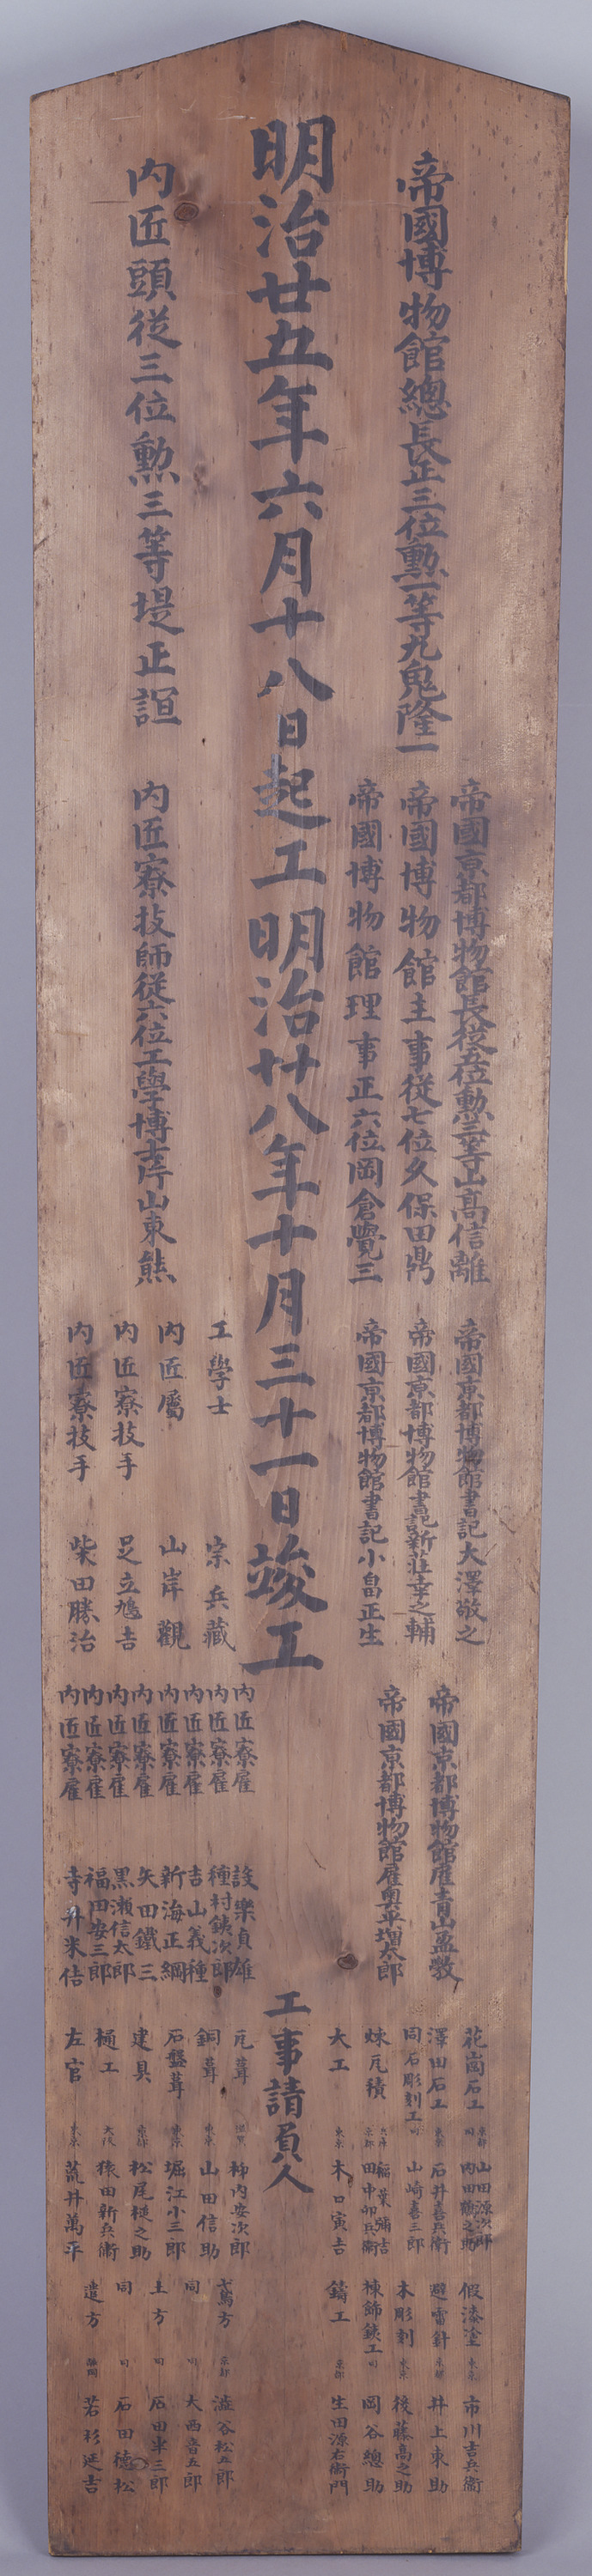 帝國博物館總長正三位勲一等九鬼隆一
帝國京都博物館長從五位勲三等山高信離
帝國博物館主事從七位久保田鼎
帝國博物館理事正六位岡倉覺三
帝國京都博物館書記大澤敬之
帝國京都博物館書記新荘幸之輔
帝國京都博物館書記小畠正生
帝國京都博物館雇青山盈敷
帝國京都博物館雇奥平増太郎
明治廿五年六月十八日起工明治廿八年十月三十一日竣工
内匠頭從三位勲三等堤正誼
内匠寮技師從六位工學博士片山東熊
工學士 宗兵藏
内匠屬 山岸觀
内匠寮技手 足立鳩吉
内匠寮技手 柴田勝治
内匠寮雇 設樂貞雄
内匠寮雇 種村銕次郎
内匠寮雇 吉山義種
内匠寮雇 新海正綱
内匠寮雇 矢田鐵三
内匠寮雇 黒瀬信太郎
内匠寮雇 福田安三郎
内匠寮雇 寺井米佶
工事請負人
花崗石工 京都 山田源次郎
同 内田鶴之助
澤田石工 東京 石井喜兵衛
同石彫刻工 同 山崎喜三郎
煉瓦積 稲葉彌吉
京都 田中卯兵衛
大工 東京 木口寅吉
假漆塗 東京 市川吉兵衛
避雷針 京都 井上東助
木彫刻 東京 後藤高之助
棟飾銕工 同 岡谷總助
鑄工 京都 生田源右衛門
瓦葺 柳内安次郎
銅葺 東京 山田信助
石盤葺 東京 堀江小三郎
建具 京都 松尾槌之助
樋工 大阪 猿田新兵衛
左官 東京 荒井萬平
弌鳶方 京都 澁谷松五郎
同 同 大西音五郎
土方 同 石田半三郎
同 同 石田徳松
遣方 静岡 若杉延吉